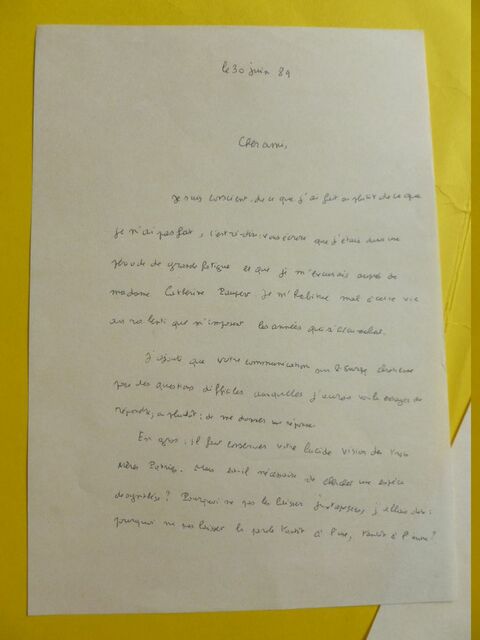 le 30 juin 89
Cher ami,
Je suis conscient de ce que j'ai fait ou plutôt de ce que
je n'ai pas fait, c'est-à-dire vous écrire que j'étais dans une
période de grande fatigue et que je m'excusais auprès de
madame Catherine . Je m'habitue mal à cette vie
au ralenti que m'imposent les années qui s'accumulent.
J'ajoute que votre communication sur
pose des questions difficiles auxquelles j'aurais voulu essayer de
répondre, ou plutôt : de me donner une réponse.
En gros, il faut conserver votre lucide vision des trois
. Mais est-il nécessaire de chercher une espèce
de synthèse? Pourquoi ne pas les laisser juxtaposées, j'allais dire :
pourquoi ne pas laisser la parole tantôt à l'une, tantôt à l'autre?